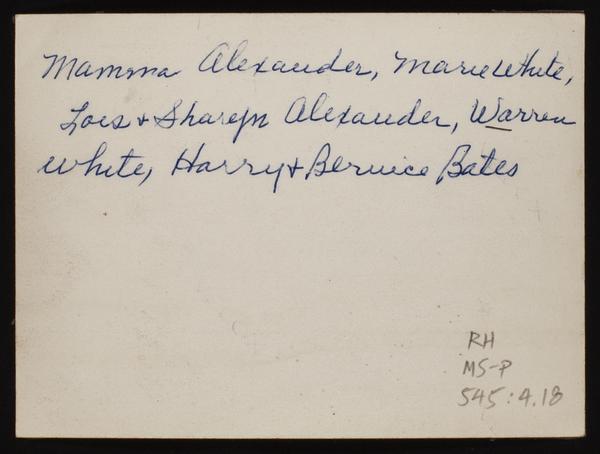 Mamma Alexander, Marie White,
Lois + Sharyn Alexander, Warren
White, Harry + Bernice Bates
RH
MS-P
545:4.18